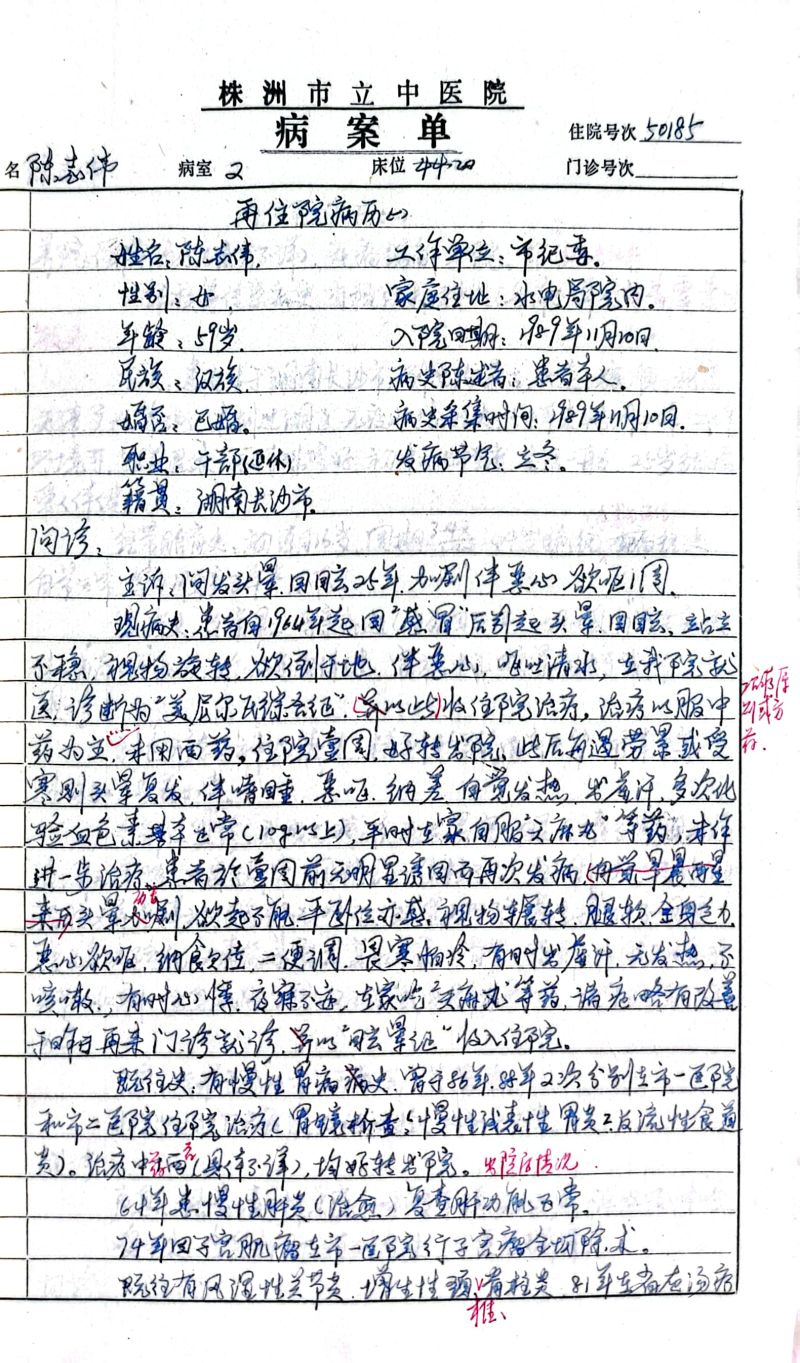 株洲市立中医院
病案单
住院号次 50185
名 陈志伟 病室 2 床位 44-20 门诊号次
再住院病历(1)
姓名：陈志伟. 工作单位：市纪委。
性别：女 家庭住址：水电局院内。
年龄：59岁. 入院日期：1989年11月10日.
民族：汉族. 病史陈述者：患者本人。
婚否：已婚. 病史采集时间：1989年11月10日.
职业：干部(退休) 发病节气：立冬。
籍贯：湖南长沙市.
问诊：
主诉：间发头晕.目眩25年.加剧伴恶心欲呕1周.
现病史：患者自1964年起因"感冒"后引起头晕.目眩.站立
不稳，视物旋转，欲倒于地.伴恶心，呕吐清水，在我院就
医，诊断为"美尼尔氏综合征"(并以此)收住院治疗，治疗以服中
药为主，未用西药。住院壹周.好转出院.此后每遇劳累或受
寒则头晕复发.伴嗜睡.恶呕.纳差.自觉发热.出虚汗，多次化
验血色素基本正常(10g以上)，平时在家自服"天麻丸"等药，未作
进一步治疗，患者于壹周前无明显诱因而再次发病，
头晕加剧.欲起不能.平卧位亦感.视物转.腿软.全身乏力.
恶心欲呕.纳食欠佳，二便调.畏寒怕冷，有时出虚汗，无发热，不
咳嗽，有时心悸.夜寐不安，在家吃"天麻丸"等药，病症略有改善
于昨日再来门诊就诊，并以"眩晕证"收入住院。
既往史：有慢性胃病病史，曾于86年.88年2次分别在市一医院
和市二医院住院治疗(胃镜检查：慢性浅表性胃炎；反流性食道
炎)。治疗中药西药(具体不详)，均好转出院。出院后情况
64年患慢性肝炎(治愈)复查肝功能正常。
74年因子宫肌瘤在市一医院行子宫瘤全切除术。
既往有风湿性关节炎.增生性颈脊柱炎.81年在省
椎、